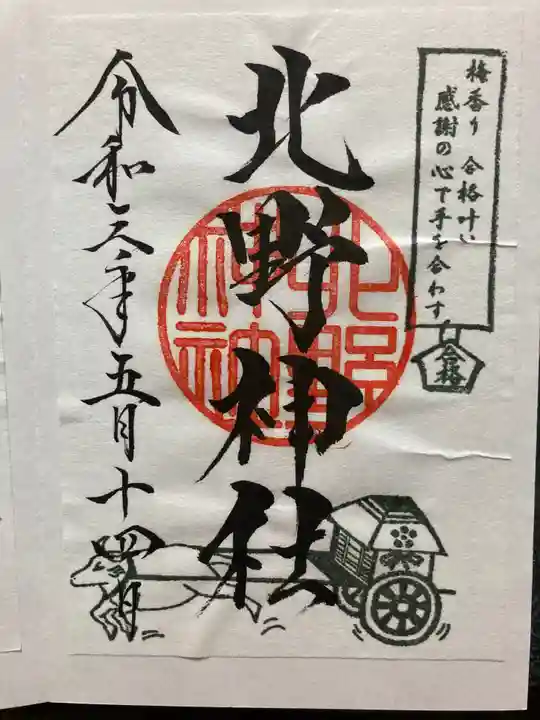 梅香り 合格叶い
感謝の心で手を合わす
合格
北野神社
北野神社
令和六年五月十四日